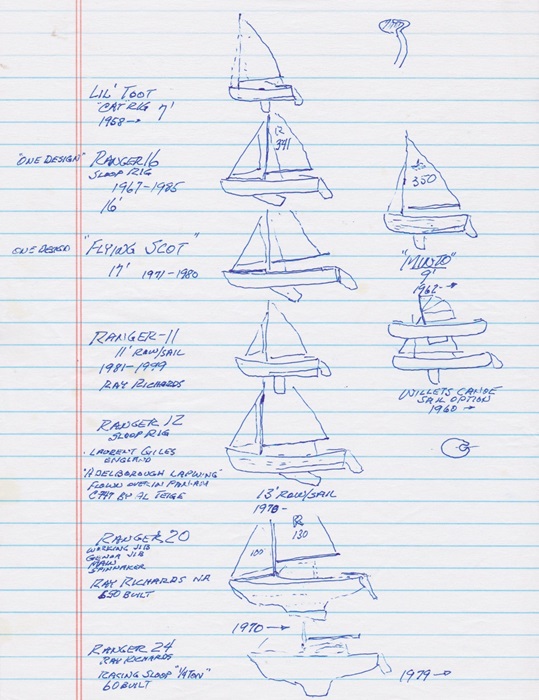 LIL' TOOT
"CAT" RIG 7'
1958 →
"ONE DESIGN" RANGER 16
SLOOP RIG
1967-1985
16'
R
341
350
ONE DESIGN "FLYING SCOT"
17' 1971-1980
"MINTO"
9'
1962- →
RANGER-11
11' ROW/SAIL
1981-1999
RAY RICHARDS
WILLETS CANOE
SAIL OPTION
1960 →
RANGER 12
SLOOP RIG
LAURENT GILES
ENGLAND
FLOWN OVER IN PAN-AM
BY AL TEIGE
13' ROW/SAIL
1978-
RANGER 20
WORKING JIB
GENOA JIB
MAIN
SPINNAKER
RAY RICHARDS N.A
BUILT
100
R
130
1970 →
RANGER 24
RAY RICHARDS
RACING SLOOP "1/4 TON"
60 BUILT
1979 →